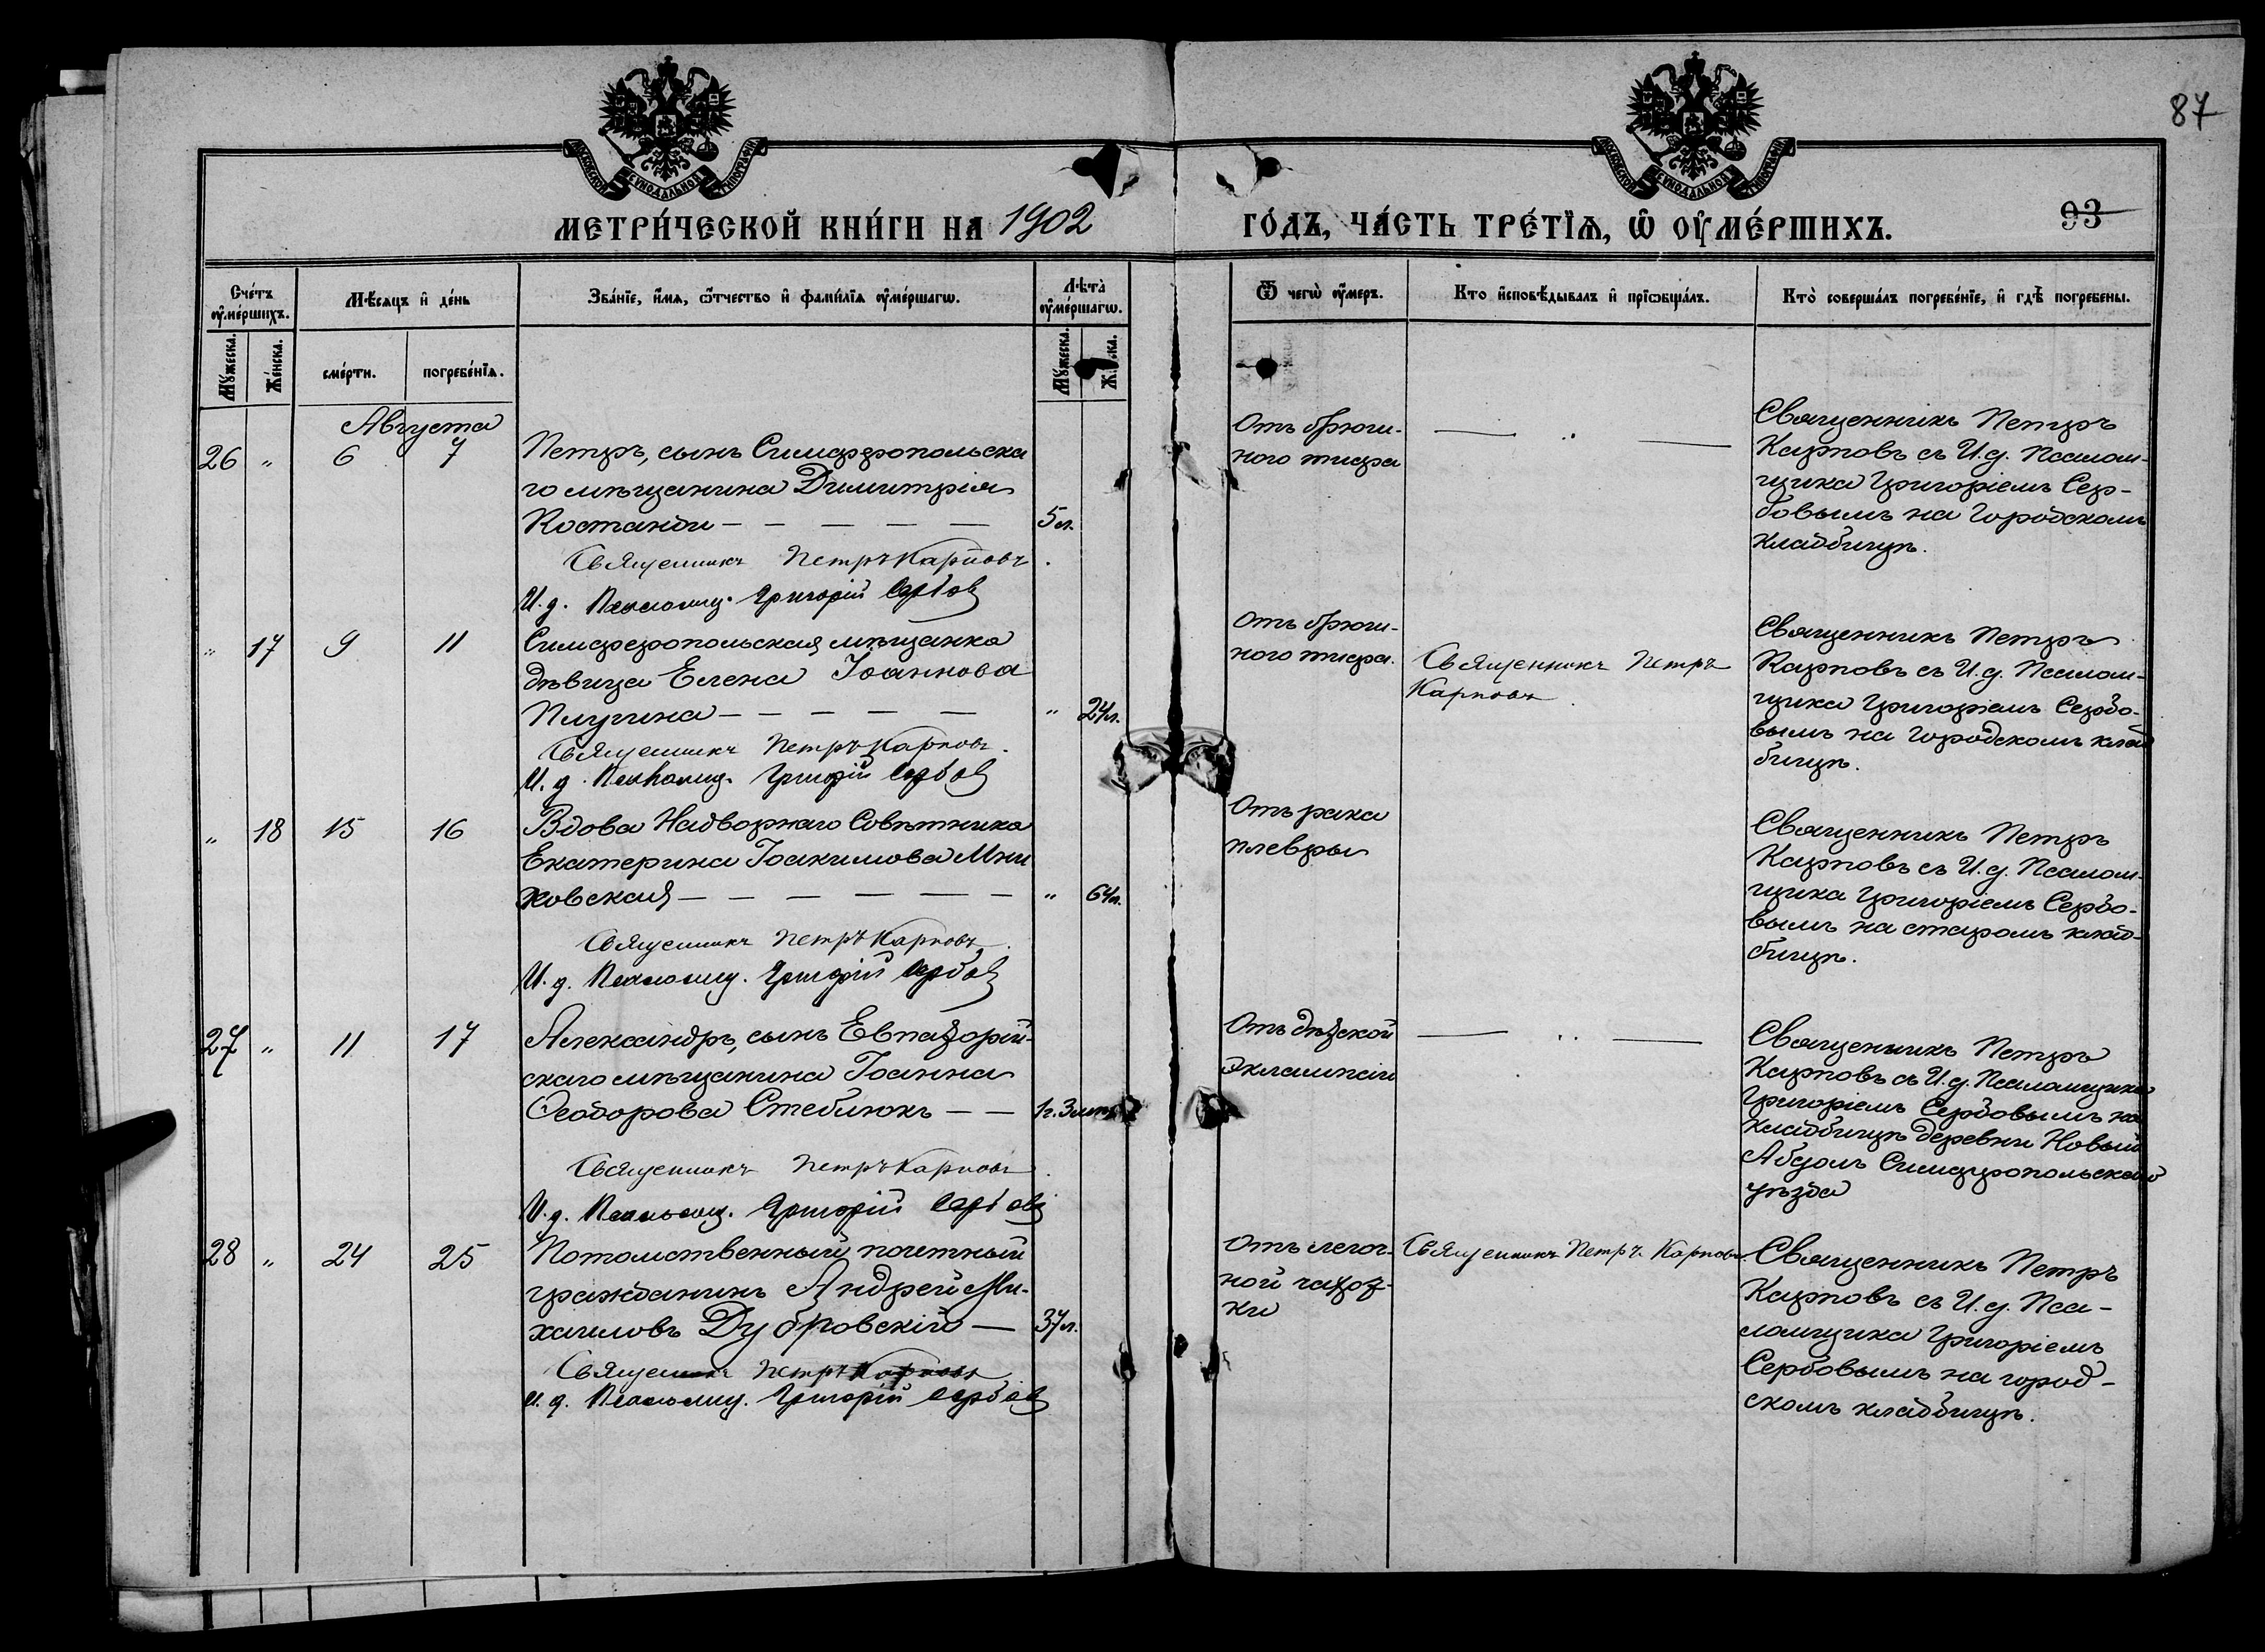 87
МОСКОВСКОЙ СѴНОДАЛЬНОЙ ТИПОГРАФІИ
МОСКОВСКОЙ СѴНОДАЛЬНОЙ ТИПОГРАФІИ
МЕТРИ́ЧЕСКОЙ КНИ́ГИ НА 1902 ГО́ДЪ, ЧА́СТЬ ТРЕ́ТЇѦ, Ѡ҆ ОУ҆МЕ́РШИХЪ.
93
Сче́тъ ᲂу҆ме́ршихъ.
Мѣ́сѧцъ и҆ де́нь
Зва́нїе, и҆́мѧ, ѻ҆́тчество и҆ фами́лїѧ ᲂу҆ме́ршагѡ.
Лѣ́та ᲂу҆ме́ршагѡ.
Ѿ чегѡ̀ ᲂу҆́меръ.
Кто и҆сповѣ́дывалъ и҆ прїѡбща́лъ.
Кто̀ соверша́лъ погребе́нїе, и҆ гдѣ̀ погребены.
Мꙋ́жеска.
Же́нска.
сме́рти.
погребе́нїѧ.
Мꙋ́жеска.
Августа
26 " 6 7
Петръ, сынъ Симферопольска
го мѣщанина Димитрія
Костанди — — — — — 5 л.
Священникъ Петръ Карповъ.
И. д. Псаломщ. Григорій Сербов
Отъ брюш-
ного тифа
— " —
Священникъ Петръ
Карповъ съ И. д. Псалом-
щика Григоріемъ Сер-
бовымъ на Городскомъ
кладбищѣ.
" 17 9 11
Симферопольская мѣщанка
дѣвица Елена Іоаннова
Плугина — — — — — " 24 л.
Священникъ Петръ Карповъ.
И. д. Псаломщ. Григорій Сербов
Отъ брюш-
ного тифа.
Священникъ Петръ
Карповъ
Священникъ Петръ
Карповъ съ И. д. Псалом-
щика Григоріемъ Сербо-
вымъ на Городскомъ клад
бищѣ.
" 18 15 16
Вдова Надворнаго Совѣтника
Екатерина Іоакимова Мни
ховская — — — — — — " 64 л.
Священникъ Петръ Карповъ.
И. д. Псаломщ. Григорій Сербов
Отъ рака
плевры
Священникъ Петръ
Карповъ съ И. д. Псалом-
щика Григоріемъ Сербо-
вымъ на старомъ клад-
бищѣ.
27 " 11 17
Александръ, сынъ Евпаторій-
скаго мѣщанина Іоанна
Ѳеодорова Стеблюкъ — — 1 г. 3 мѣс.
Священникъ Петръ Карповъ.
И. д. Псаломщ. Григорій Сербов
Отъ дѣтской
Эклампсіи
— " —
Священникъ Петръ
Карповъ съ И. д. Псаломщика
Григоріемъ Сербовымъ на
кладбищѣ деревни Новый
Абдолъ Симферопольскаго
уѣзда
28 " 24 25
Потомственный почетный
гражданинъ Андрей Ми-
хаиловъ Дубровскій — 37 л.
Священникъ Петръ Карповъ
И. д. Псаломщ. Григорій Сербов
Отъ легоч-
ной чахот-
ки
Священникъ Петръ Карповъ.
Священникъ Петръ
Карповъ съ И. д. Пса-
ломщика Григоріемъ
Сербовымъ на город-
скомъ кладбищѣ.